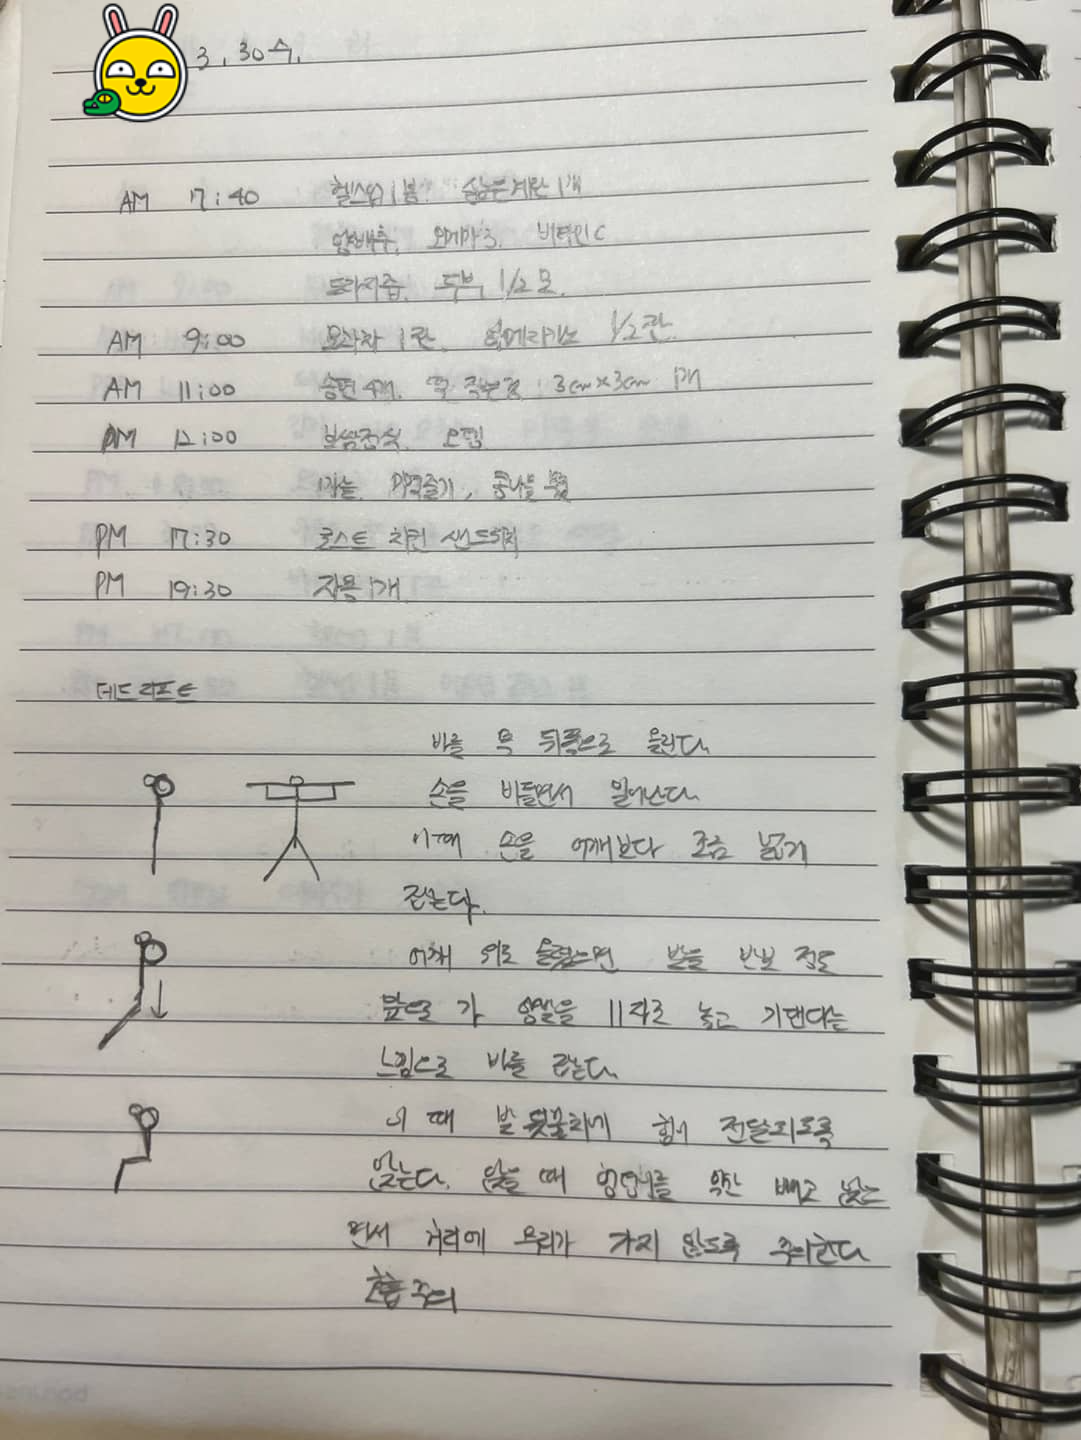 3. 30 수.
AM 7:40 헬스업 1봉. 삶은계란 1개
양배추, 오메가3, 비타민C
도라지즙, 두부 1/2모.
AM 9:00 모과차 1잔, 아메리카노 1/2잔.
AM 11:00 송편 4개. 3cm×3cm 1개
PM 12:00 보쌈정식.
마늘, 콩나물
PM 17:30 로스트 치킨 샌드위치
PM 19:30 자몽 1개.
데드리프트
바를 목 뒤쪽으로 올린다.
손을 비틀면서 일어난다.
이때 손을 어깨보다 조금 넓게
잡는다.
어깨 위로 올렸으면 발을 반보 정도
앞으로 가 양발을 11자로 놓고 기댄다는
느낌으로 바를 잡는다.
이 때 발 뒷꿈치에 힘이 전달되도록
앉는다. 앉을 때 엉덩이를 약간 빼고 앉으
면서 허리에 무리가 가지 않도록 주의한다
호흡주의